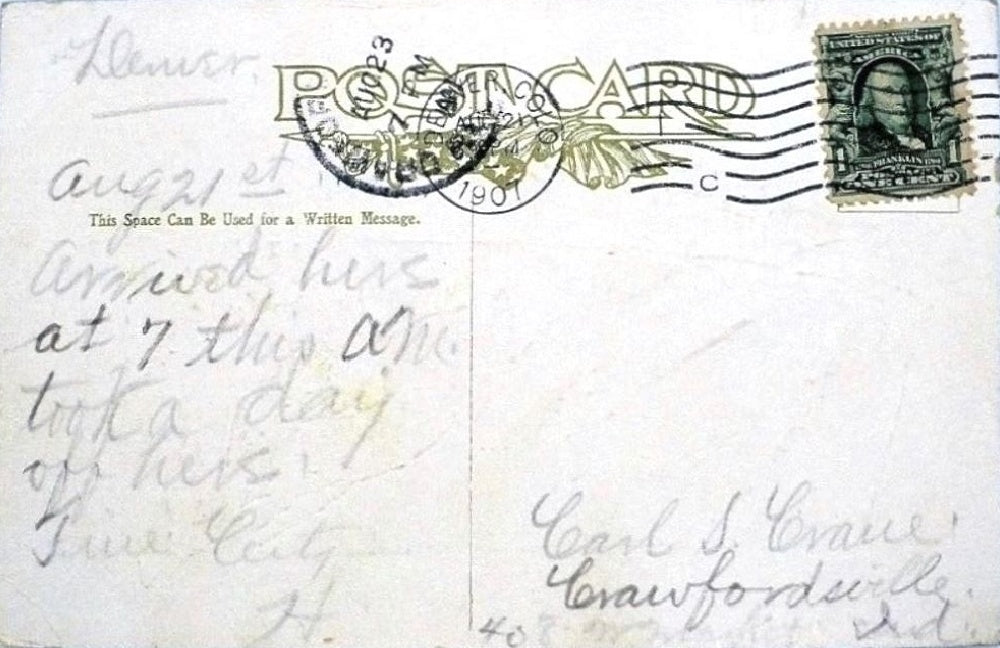 Denver.
POST CARD
AUG 23
7 PM
DENVER COLO
AUG 21
1907
C
UNITED STATES OF AMERICA
FRANKLIN
1
Aug 21st
This Space Can Be Used for a Written Message.
Arrived here
at 7. this AM.
took a day
off here.
Fine City
H
Carl S. Crane.
Crawfordsville.
408 W Ind.